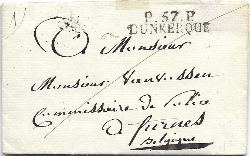 P. 57. P.
DUNKERQUE
A Monsieur
Monsieur
Commissaire de Police
à furnes
Belgique